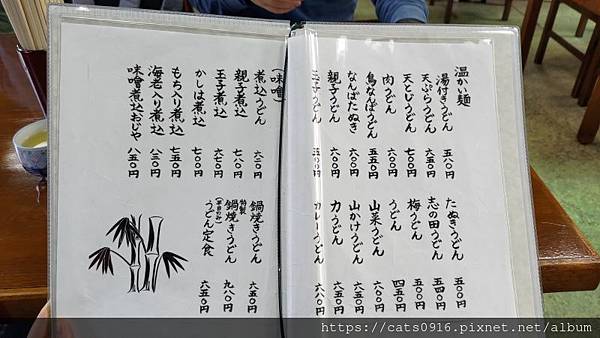 温かい麺
湯付きうどん 五八〇円
天ぷらうどん 六五〇円
天とじうどん 七〇〇円
肉うどん 六〇〇円
鳥なんばうどん 五五〇円
なんばたぬき 六〇〇円
親子うどん 六〇〇円
玉子うどん 五〇〇円
たぬきうどん 五〇〇円
志の田うどん 五四〇円
梅うどん 五五〇円
うどん 四五〇円
山菜うどん 六〇〇円
山かけうどん 六五〇円
力うどん 六五〇円
カレーうどん 六八〇円
(味噌)
煮込うどん 六三〇円
親子煮込 七八〇円
玉子煮込 六七〇円
かしは煮込 七〇〇円
もち入り煮込 七五〇円
海老入り煮込 八三〇円
味噌煮込おじや 八五〇円
鍋焼きうどん 六五〇円
特製鍋焼きうどん 九八〇円
うどん定食 六五〇円
https://cats0916.pixnet.net/album